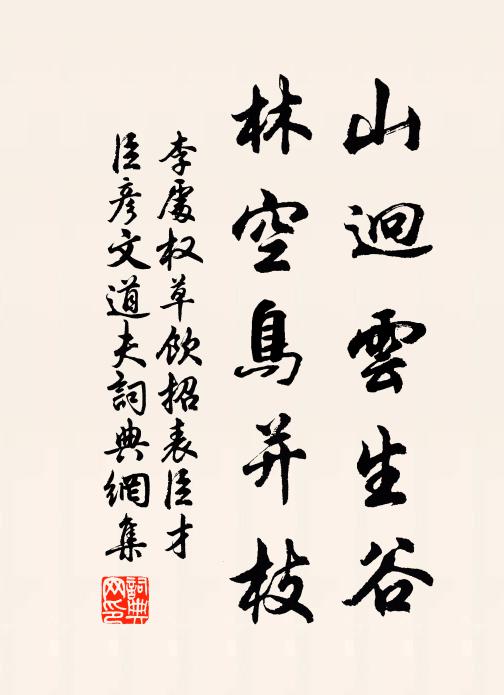 山迴雲生谷
林空鳥并枝
李處权草飲招表臣才
臣彥文道夫詞典網集
詞典網印